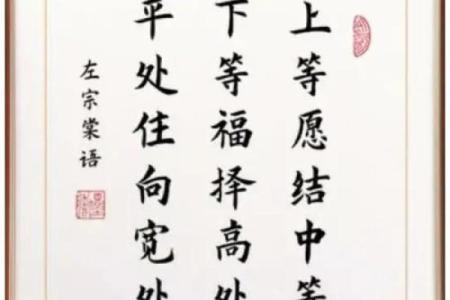 上等愿结中等
下等福择高处
平处住向宽处
左宗棠语